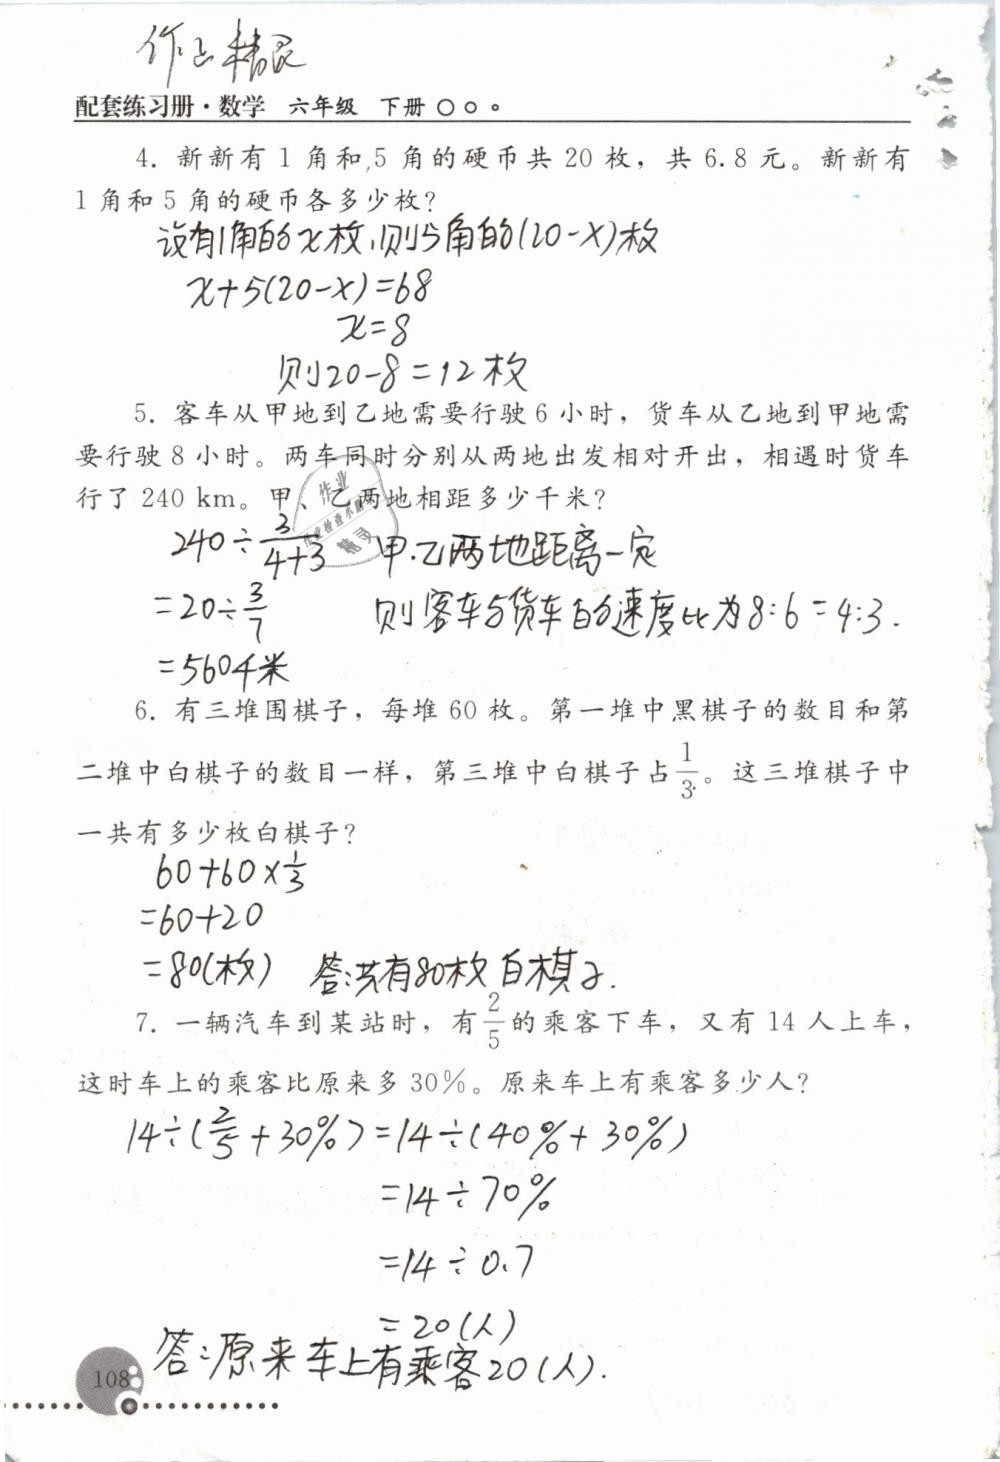 作业精灵
配套练习册·数学 六年级 下册○○。
4. 新新有1角和5角的硬币共20枚，共6.8元。新新有
1角和5角的硬币各多少枚?
设有1角的x枚,则5角的(20-x)枚
x+5(20-x)=68
x=8
则20-8=12枚
5. 客车从甲地到乙地需要行驶6小时，货车从乙地到甲地需
要行驶8小时。两车同时分别从两地出发相对开出，相遇时货车
行了240 km。甲、乙两地相距多少千米?
240÷3/(4+3) 甲.乙两地距离一定
=20÷3/7 则客车与货车的速度比为8:6=4:3.
=560千米
6. 有三堆围棋子，每堆60枚。第一堆中黑棋子的数目和第
二堆中白棋子的数目一样，第三堆中白棋子占1/3。这三堆棋子中
一共有多少枚白棋子?
60+60×1/3
=60+20
=80(枚) 答:共有80枚白棋子.
7. 一辆汽车到某站时，有2/5的乘客下车，又有14人上车，
这时车上的乘客比原来多30%。原来车上有乘客多少人?
14÷(2/5+30%)=14÷(40%+30%)
=14÷70%
=14÷0.7
=20(人)
答:原来车上有乘客20(人).
108